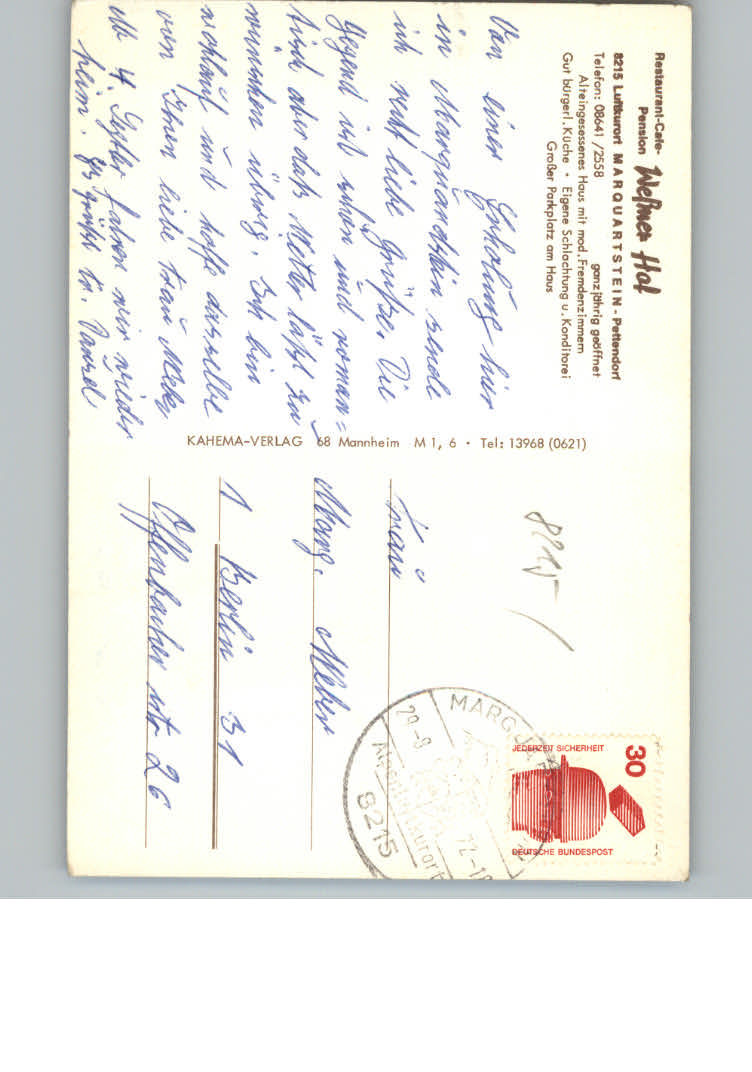 Restaurant-Cafe-
Pension Weßner Hof
8215 Luftkurort MARQUARTSTEIN - Pettendorf
Telefon: 08641/2558 ganzjährig geöffnet
Alteingesessenes Haus mit mod. Fremdenzimmern
Gut bürgerl. Küche • Eigene Schlachtung u. Konditorei
Großer Parkplatz am Haus
Von einer Erholung hier
in Marquardstein sende
ich recht liebe Grüße. Die
Gegend ist schön und roman=
tisch aber das Wetter läßt zu
wünschen übrig. Ich bin
wohlauf und hoffe dasselbe
von Ihnen liebe Frau
4 fahren wir wieder
heim. Es grüßt Fr.
KAHEMA-VERLAG 68 Mannheim M 1, 6 • Tel: 13968 (0621)
8215
Frau
Marg. Weber
1 Berlin 31
Offenbacher str 26
30
JEDERZEIT SICHERHEIT
DEUTSCHE BUNDESPOST
8215